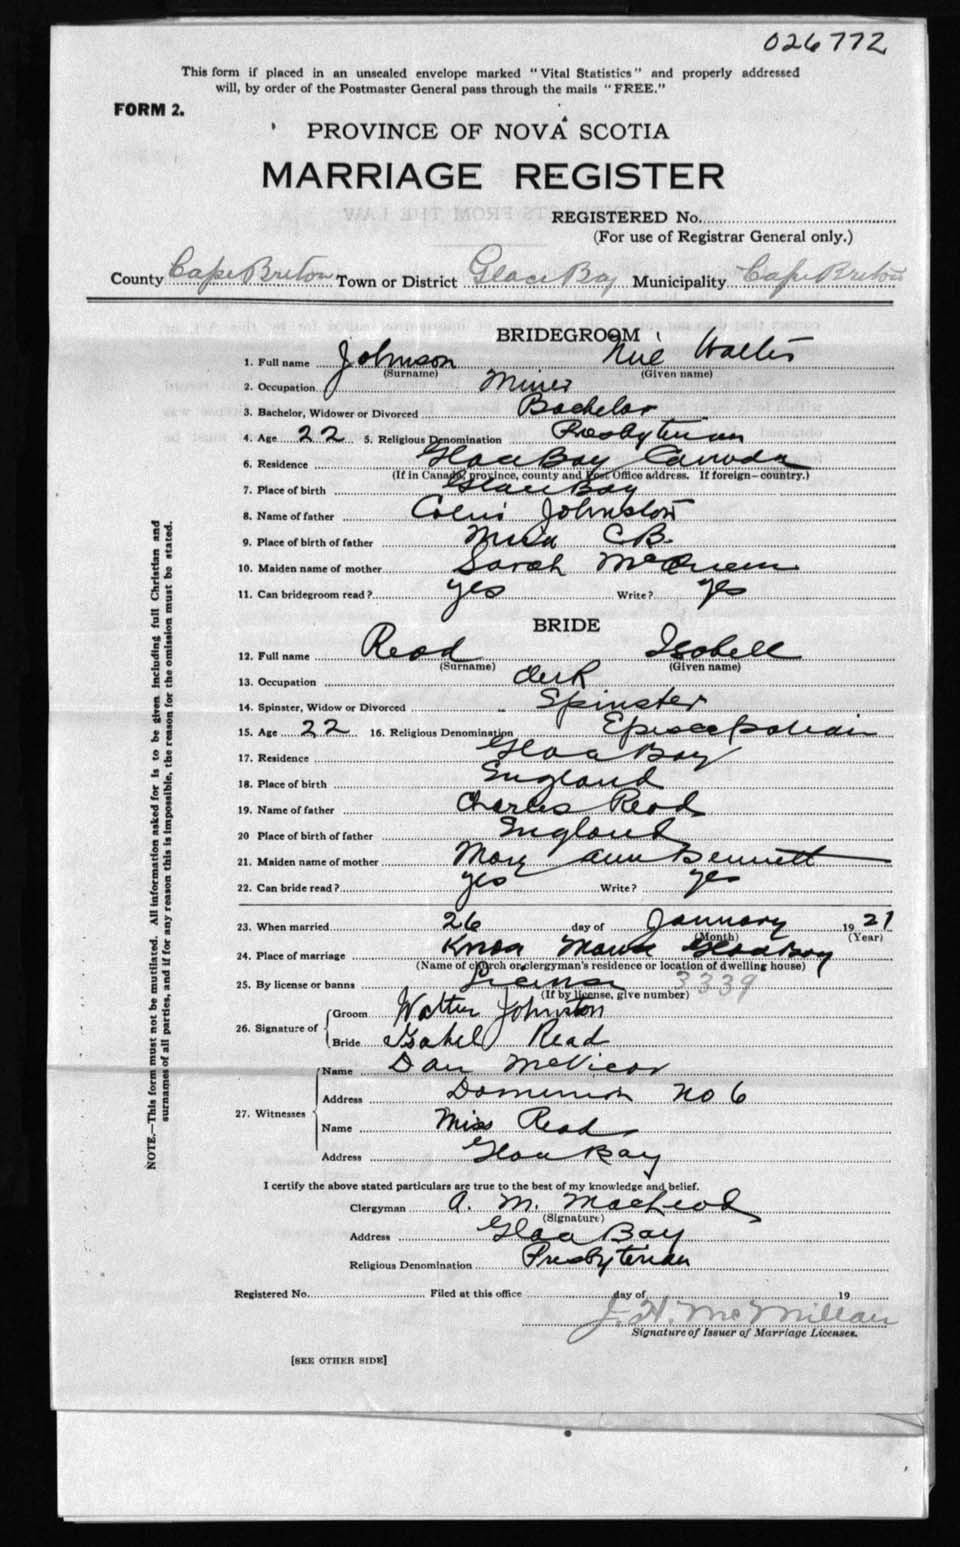 026772
This form if placed in an unsealed envelope marked "Vital Statistics" and properly addressed
will, by order of the Postmaster General pass through the mails "FREE."
FORM 2.
PROVINCE OF NOVA SCOTIA
MARRIAGE REGISTER
REGISTERED No.
(For use of Registrar General only.)
County Cape Breton Town or District Glace Bay Municipality Cape Breton
BRIDEGROOM
1. Full name Johnson Walter
(Surname) (Given name)
2. Occupation Miner
3. Bachelor, Widower or Divorced Bachelor
4. Age 22 5. Religious Denomination Presbyterian
6. Residence Glace Bay Canada
(If in Canada, province, county and Post Office address. If foreign—country.)
7. Place of birth Glace Bay
8. Name of father Colin Johnston
9. Place of birth of father Mira C.B.
10. Maiden name of mother Sarah McQueen
11. Can bridegroom read? yes Write? yes
BRIDE
12. Full name Read Isobell
(Surname) (Given name)
13. Occupation clerk
14. Spinster, Widow or Divorced Spinster
15. Age 22 16. Religious Denomination Episcopalian
17. Residence Glace Bay
18. Place of birth England
19. Name of father Charles Read
20 Place of birth of father England
21. Maiden name of mother Mary Ann Bennett
22. Can bride read? yes Write? yes
23. When married 26 day of January 1921
(Month) (Year)
24. Place of marriage Knox Manse Glace Bay
(Name of church or clergyman's residence or location of dwelling house)
25. By license or banns License 3339
(If by license, give number)
26. Signature of Groom Walter Johnston
Bride Isabel Read
27. Witnesses Name Dan McVicar
Address Dominion No 6
Name Miss Read
Address Glace Bay
I certify the above stated particulars are true to the best of my knowledge and belief.
Clergyman A. M. MacLeod
(Signature)
Address Glace Bay
Religious Denomination Presbyterian
Registered No. Filed at this office day of 19
J. H. McMillan
Signature of Issuer of Marriage Licenses.
[SEE OTHER SIDE]
NOTE.—This form must not be mutilated. All information asked for is to be given including full Christian and
surnames of all parties, and if for any reason this is impossible, the reason for the omission must be stated.